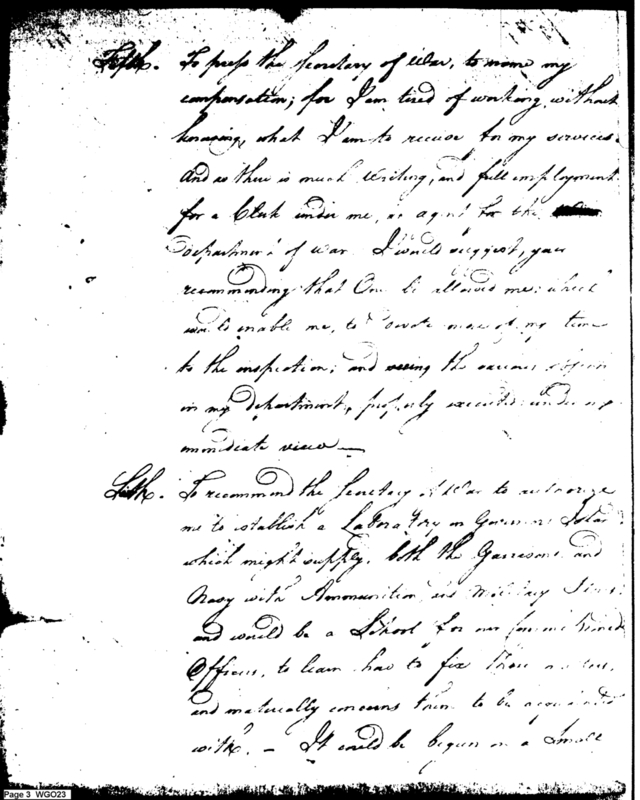 Fifth. To press the Secretary of War, to name my
compensation; for I am tired of working without
knowing, what I am to receive for my services
And as there is much writing, and full employment
for a Clerk under me, as agent for the
Department of War I would suggest, your
recommending that One be allowed me; which
would enable me, to devote more of my time
to the inspection; and seeing the various
in my department, properly executed under my
immediate view —
Sixth. To recommend the Secretary of War to authorize
me to establish a Laboratory on Governors Island
which might supply, both the Garrisons and
Navy with Ammunition and Military Stores
and would be a School for our
Officers, to learn how to fix those
and materially concerns them to be acquainted
with. — It could be begun on a Small
Page 3 WGO23